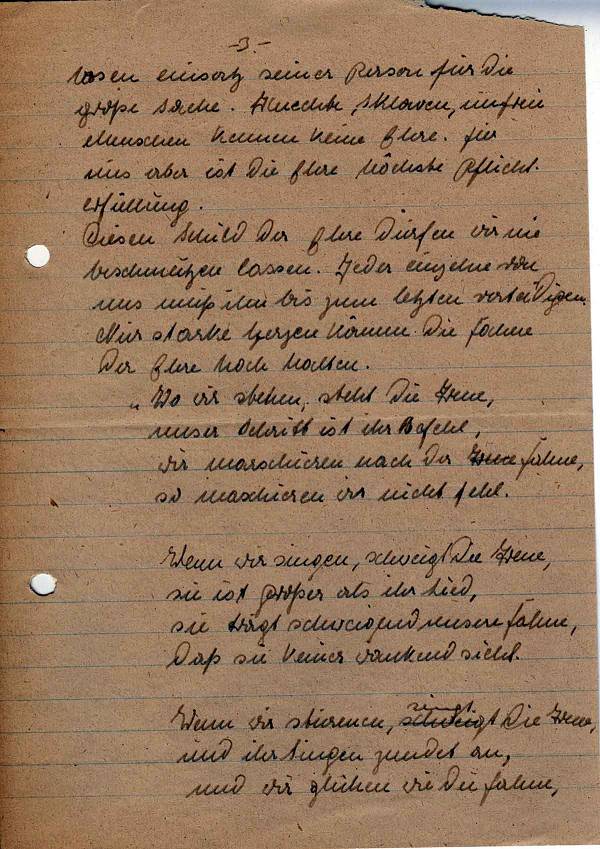 -3-
losen einsatz seiner Person für die
große Sache. Knechte, Sklaven, unfreie
Menschen kennen keine Ehre. für
uns aber ist die Ehre höchste Pflicht-
erfüllung.
Diesen Schild der Ehre dürfen wir nie
beschmutzen lassen. Jeder einzelne von
uns muß ihn bis zum letzten verteidigen.
Nur starke herzen können die fahne
der Ehre hoch halten.
„Wo wir stehen, steht die Treue,
unser Schritt ist ihr Befehl,
wir marschieren nach der Treue fahne,
so maschieren wir nicht fehl.
Wenn wir singen, schweigt die Treue,
sie ist größer als ihr Lied,
sie trägt schweigend unsere fahne,
daß sie keiner wankend sieht.
singt
Wenn wir stürmen, schweigt die Treue,
und ihr Singen zündet an,
und wir glühen wie die fahne,